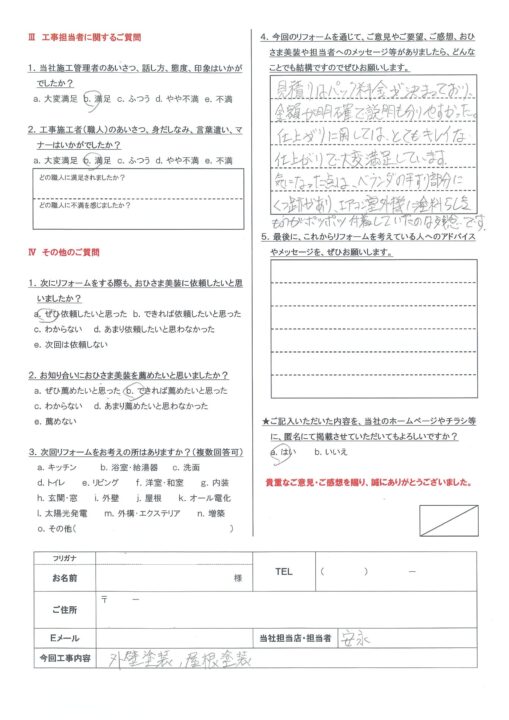 Ⅲ 工事担当者に関するご質問
1. 当社施工管理者のあいさつ、話し方、態度、印象はいかが
でしたか？
a. 大変満足 b. 満足 c. ふつう d. やや不満 e. 不満
2. 工事施工者(職人)のあいさつ、身だしなみ、言葉遣い、マ
ナーはいかがでしたか？
a. 大変満足 b. 満足 c. ふつう d. やや不満 e. 不満
どの職人に満足されましたか？
どの職人に不満を感じましたか？
Ⅳ その他のご質問
1. 次にリフォームをする際も、おひさま美装に依頼したいと思
いましたか？
a. ぜひ依頼したいと思った b. できれば依頼したいと思った
c. わからない d. あまり依頼したいと思わなかった
e. 次回は依頼しない
2. お知り合いにおひさま美装を薦めたいと思いましたか？
a. ぜひ薦めたいと思った b. できれば薦めたいと思った
c. わからない d. あまり薦めたいと思わなかった
e. 薦めない
3. 次回リフォームをお考えの所はありますか？(複数回答可)
a. キッチン b. 浴室・給湯器 c. 洗面
d. トイレ e. リビング f. 洋室・和室 g. 内装
h. 玄関・窓 i. 外壁 j. 屋根 k. オール電化
l. 太陽光発電 m. 外構・エクステリア n. 増築
o. その他( )
4. 今回のリフォームを通じて、ご意見やご要望、ご感想、おひ
さま美装や担当者へのメッセージ等がありましたら、どんな
ことでも結構ですのでぜひお願いします。
見積りはパック料金が決まっており、
金額が明確で説明も分りやすかった。
仕上がりに関しては、とてもキレイな
仕上がりで大変満足しています。
気になった点は、ベランダの手すり部分に
くつ跡があり、エアコン室外機に塗料らしき
ものがポツポツ付着していたのは残念です。
5. 最後に、これからリフォームを考えている人へのアドバイス
やメッセージを、ぜひお願いします。
★ご記入いただいた内容を、当社のホームページやチラシ等
に、匿名にて掲載させていただいてもよろしいですか？
a. はい b. いいえ
貴重なご意見・ご感想を賜り、誠にありがとうございました。
フリガナ
お名前 様 TEL ( ) －
ご住所 〒 －
Eメール 当社担当店・担当者 安永
今回工事内容 外壁塗装，屋根塗装